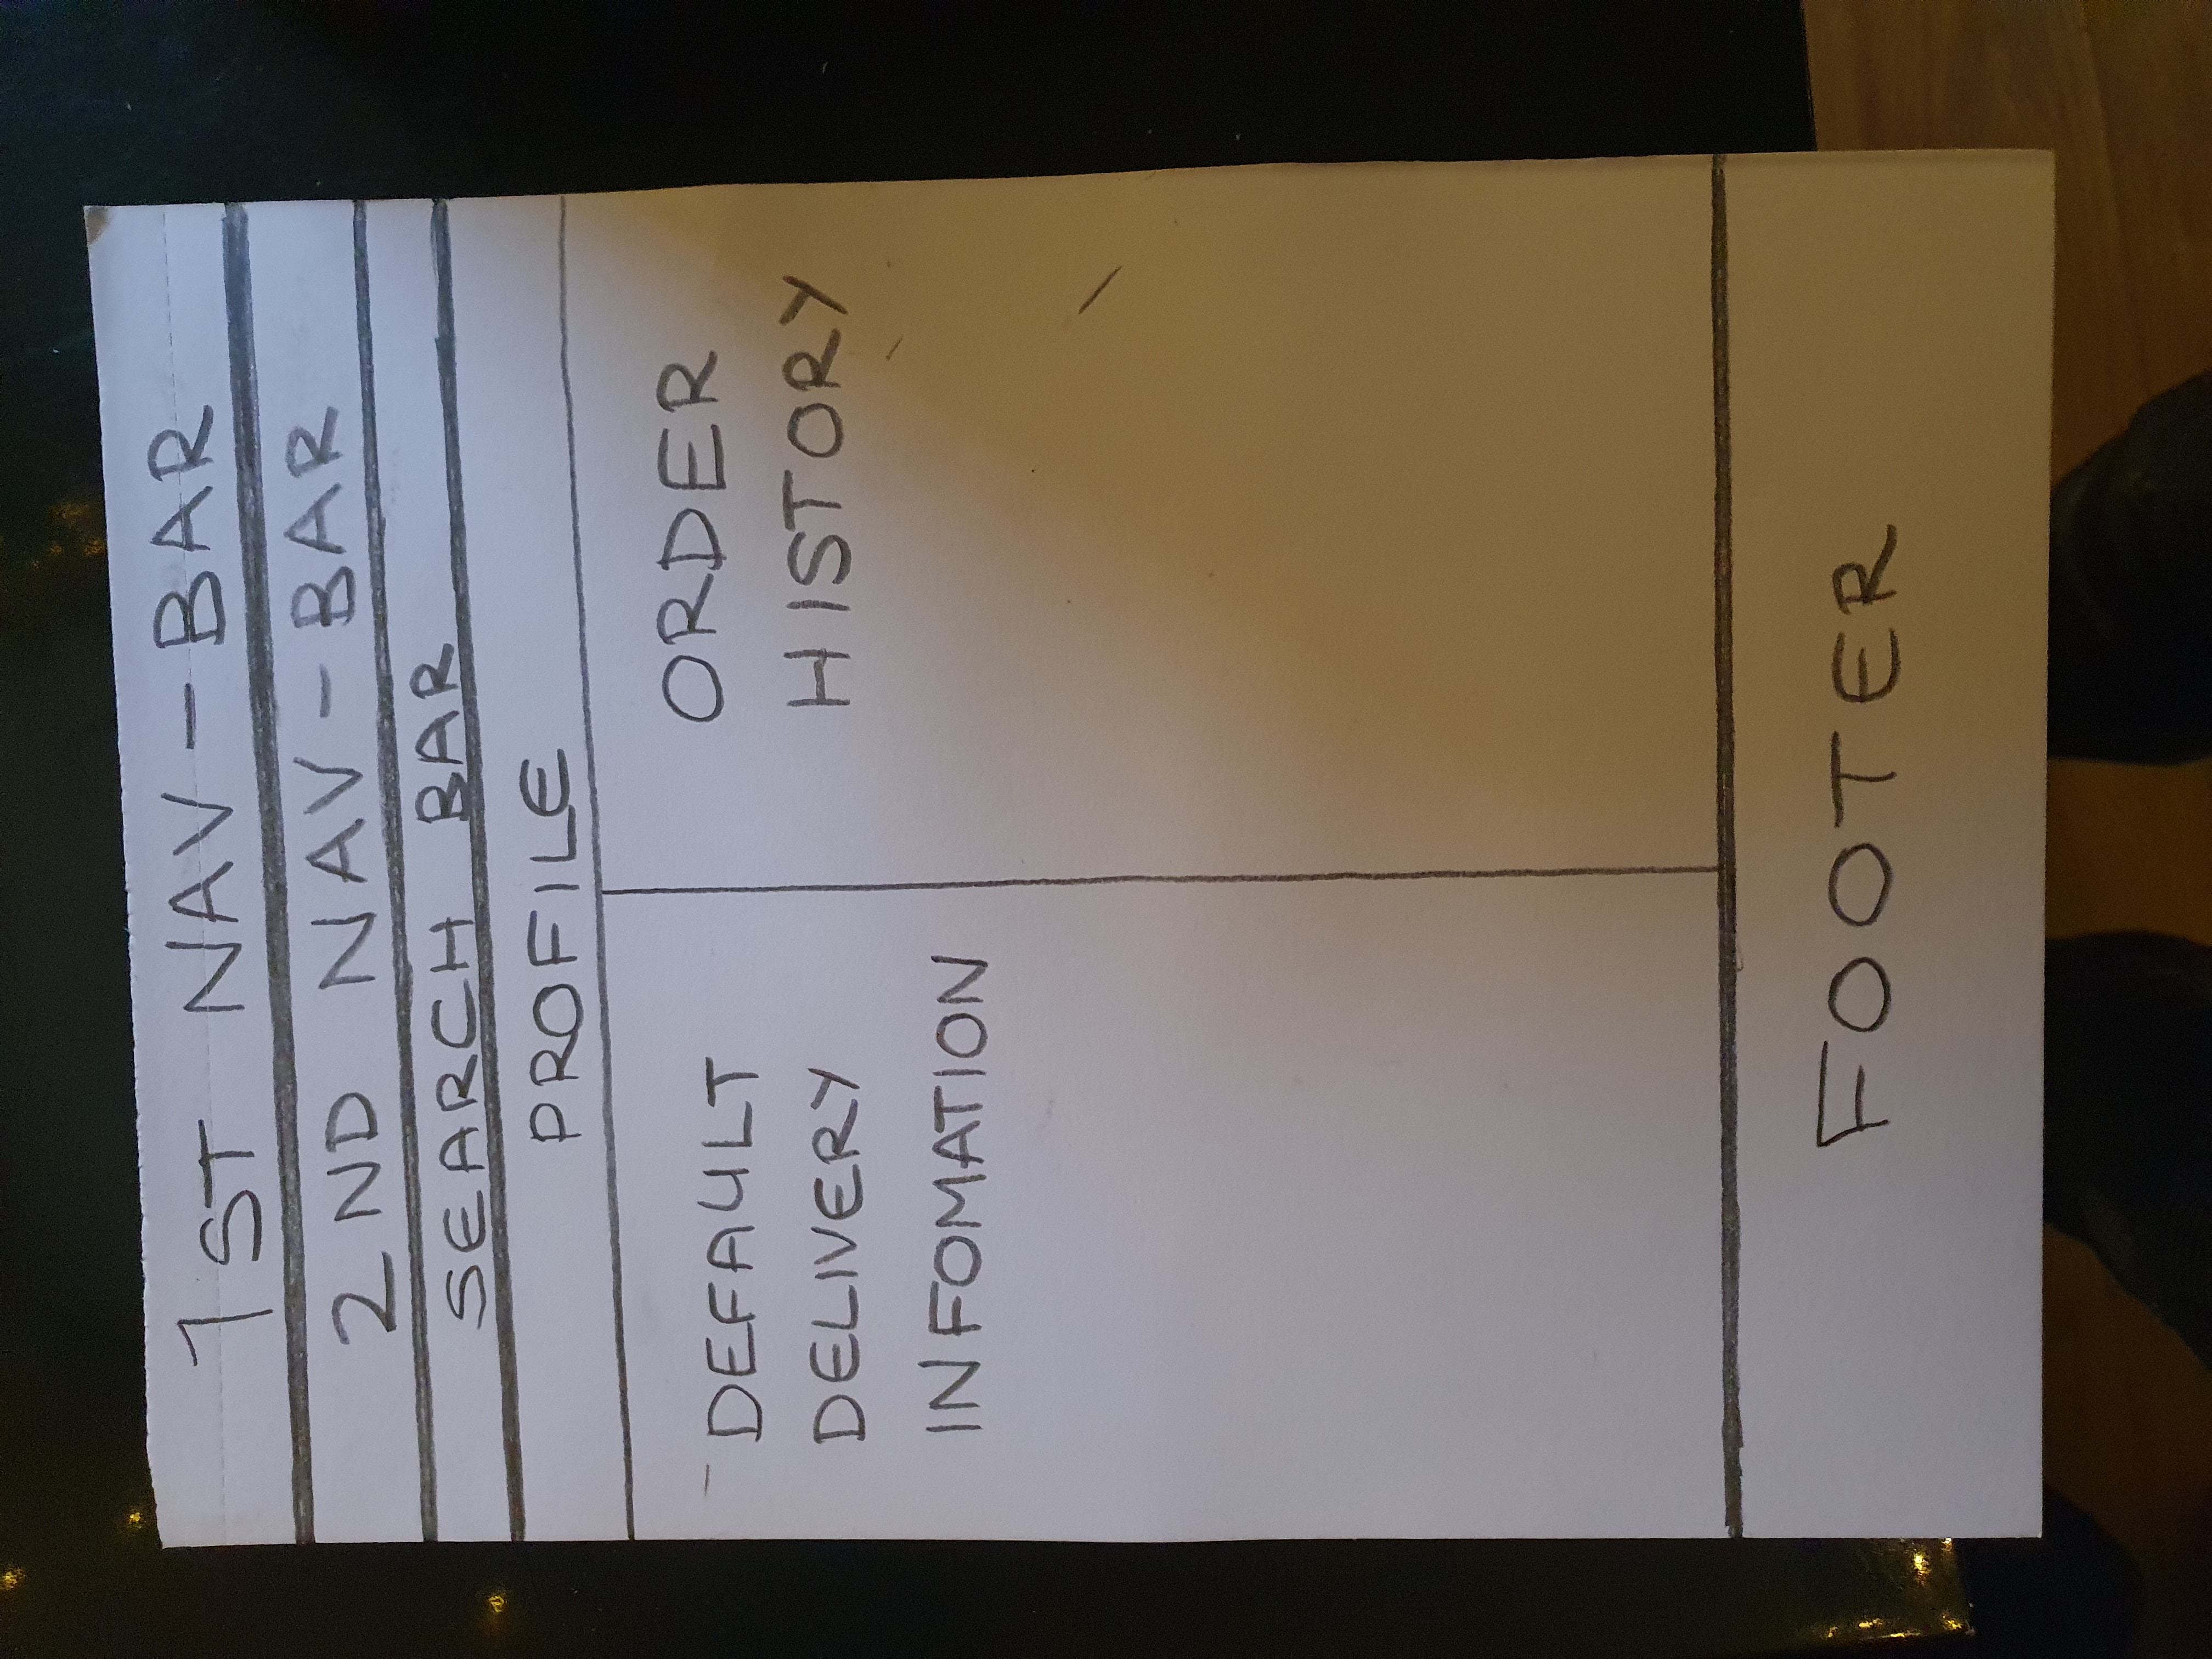 1ST NAV-BAR
2ND NAV-BAR
SEARCH BAR
PROFILE
DEFAULT
DELIVERY
INFOMATION
ORDER
HISTORY
FOOTER